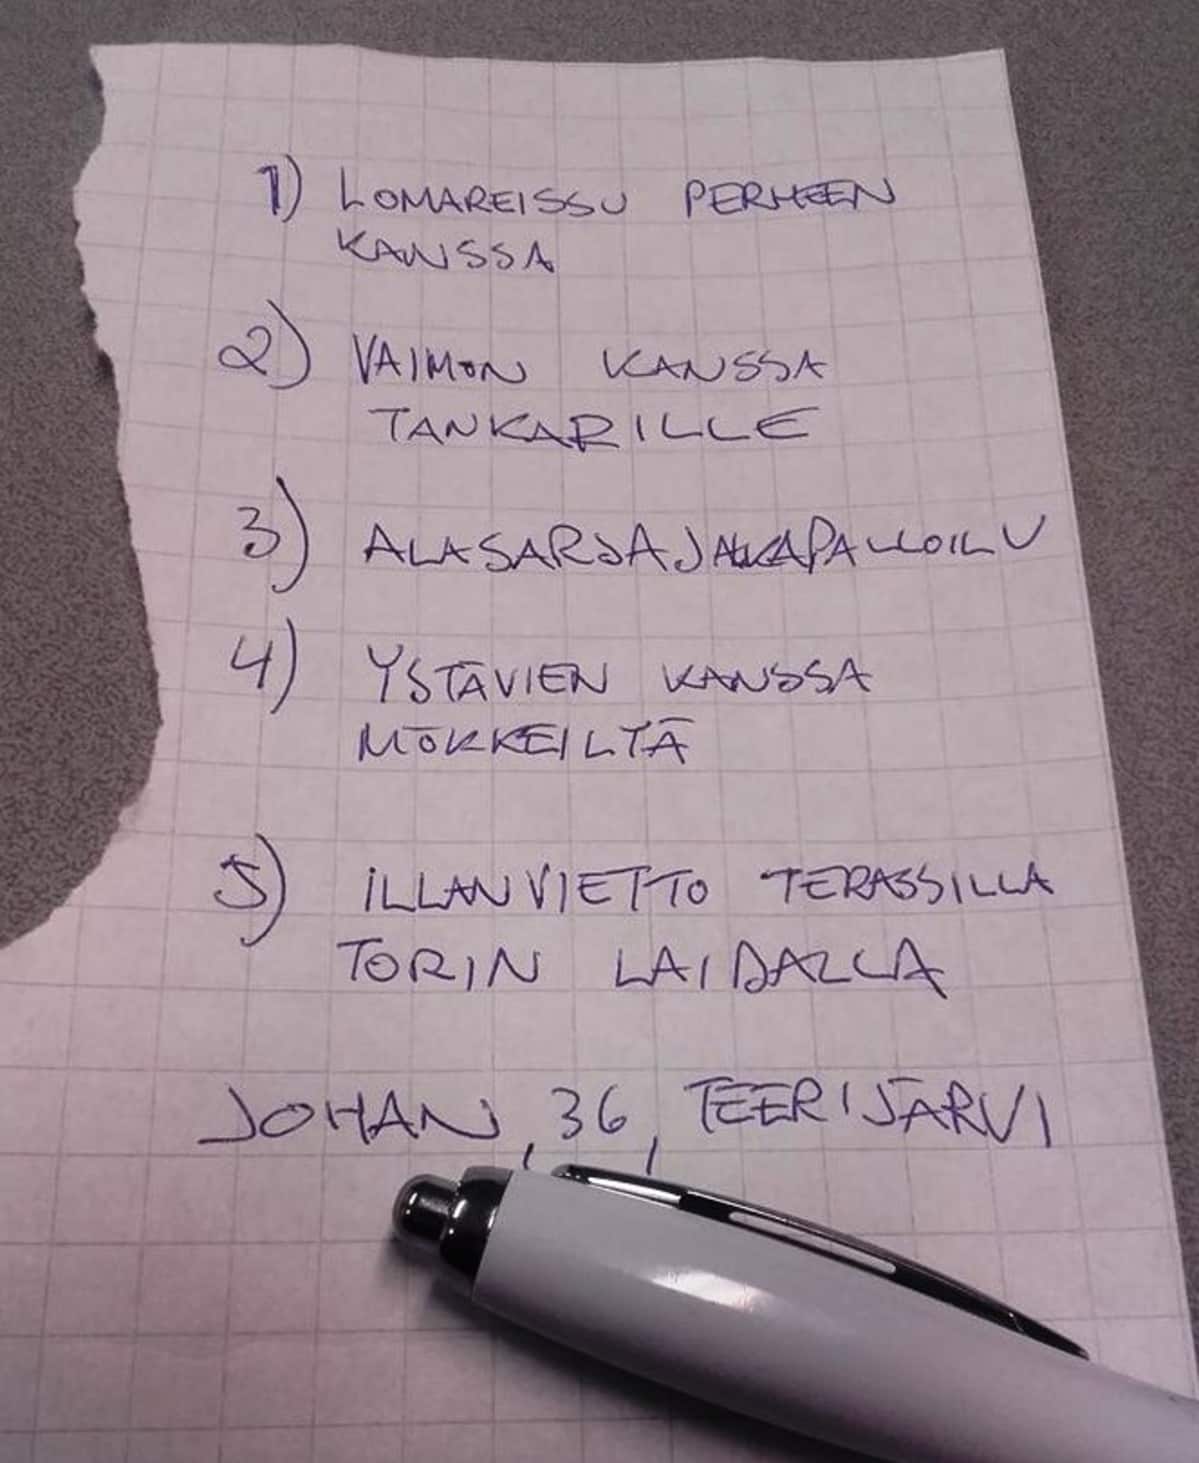 1) LOMAREISSU PERHEEN
KANSSA
2) VAIMON KANSSA
TANKARILLE
3) ALASARJAJALKAPALLOILU
4) YSTÄVIEN KANSSA
MÖKKEILTÄ
5) ILLANVIETTO TERASSILLA
TORIN LAIDALLA
JOHAN, 36, TEERIJÄRVI